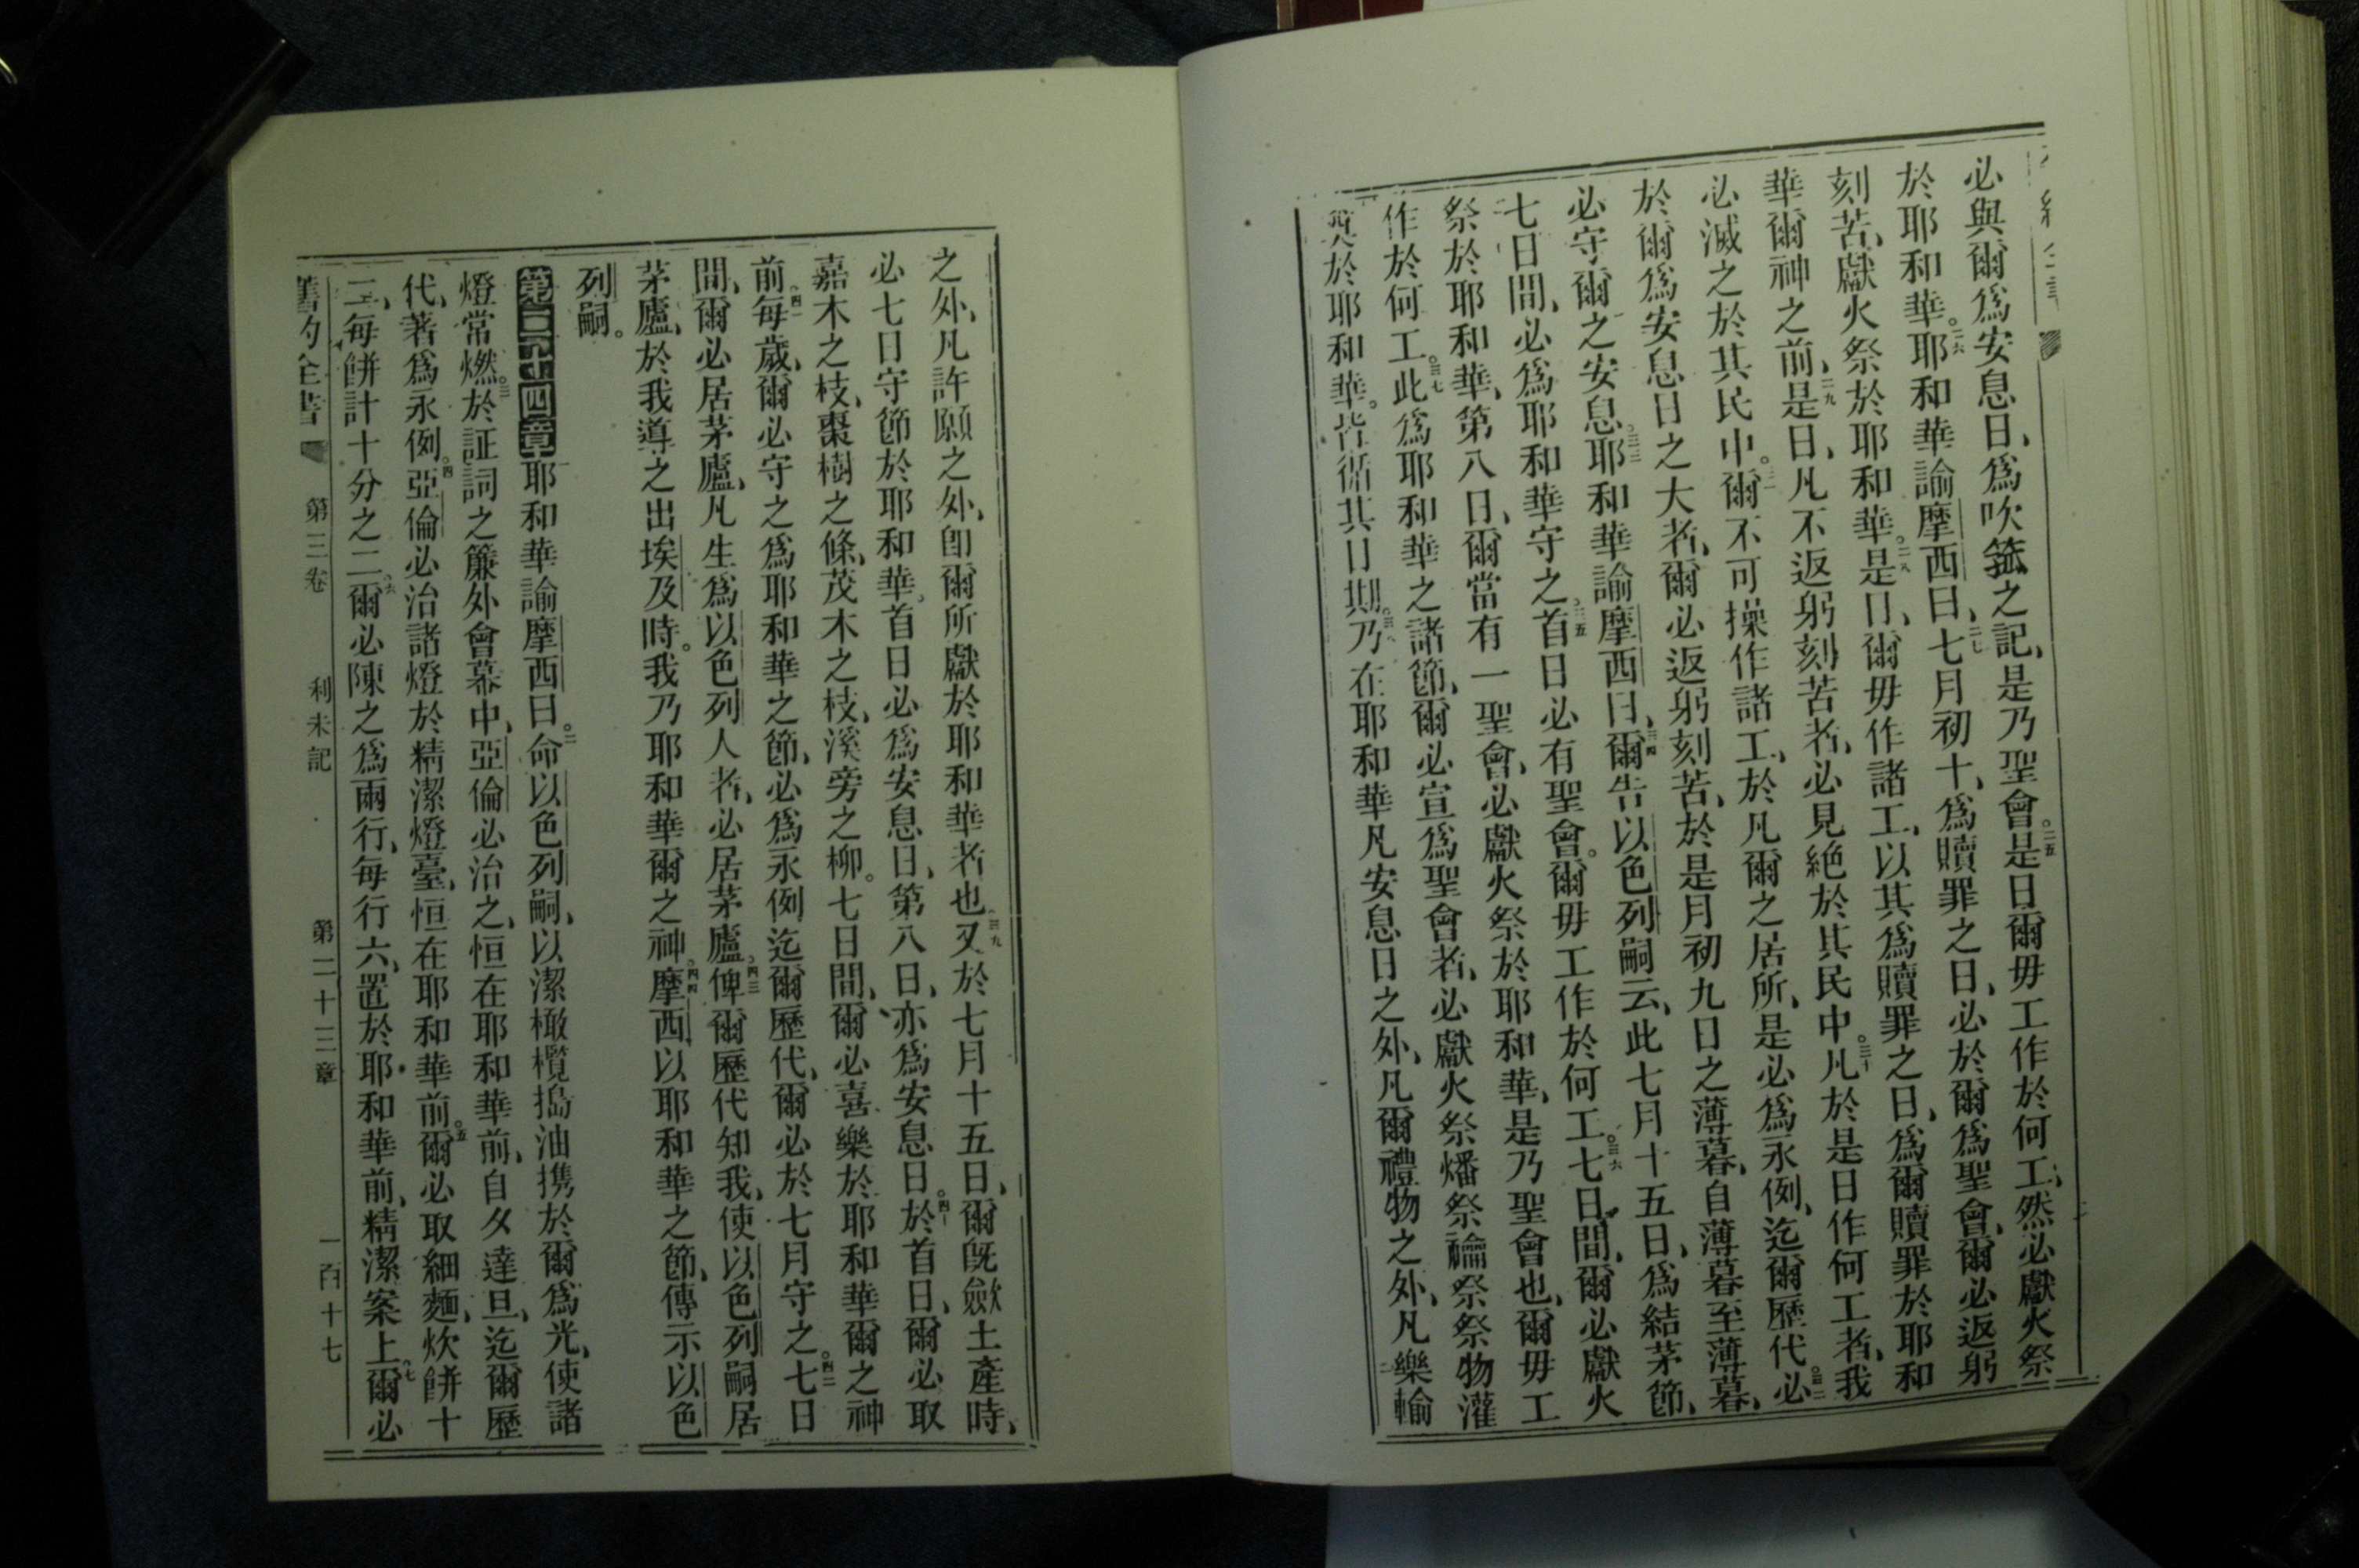 必與爾爲安息日、爲吹箛之記、是乃聖會。二五是日爾毋工作於何工、然必獻火祭
於耶和華。二六耶和華諭摩西曰、二七七月初十、爲贖罪之日、必於爾爲聖會、爾必返躬
刻苦、獻火祭於耶和華。二八是日、爾毋作諸工、以其爲贖罪之日、爲爾贖罪於耶和
華爾神之前、二九是日、凡不返躬刻苦者、必見絕於其民中。三十凡於是日作何工者、我
必滅之於其民中。三一爾不可操作諸工、於凡爾之居所、是必爲永例、迄爾歷代。三二必
於爾爲安息日之大者、爾必返躬刻苦、於是月初九日之薄暮、自薄暮至薄暮、
必守爾之安息。三三耶和華諭摩西曰、三四爾告以色列嗣云、此七月十五日、爲結茅節、
七日間、必爲耶和華守之。三五首日必有聖會。爾毋工作於何工。三六七日間、爾必獻火
祭於耶和華、第八日、爾當有一聖會、必獻火祭於耶和華、是乃聖會也、爾毋工
作於何工。三七此爲耶和華之諸節、爾必宣爲聖會者、必獻火祭燔祭禴祭祭物灌
奠於耶和華。皆循其日期。三八乃在耶和華凡安息日之外、凡爾禮物之外、凡樂輸
之外、凡許願之外、卽爾所獻於耶和華者也。三九又於七月十五日、爾旣斂土產時、
必七日守節於耶和華。首日必爲安息日、第八日、亦爲安息日。四十於首日、爾必取
嘉木之枝、棗樹之條、茂木之枝、溪旁之柳。七日間、爾必喜樂於耶和華爾之神
前。四一每歲、爾必守之爲耶和華之節、必爲永例迄爾歷代、爾必於七月守之。四二七日
間、爾必居茅廬、凡生爲以色列人者、必居茅廬。四三俾爾歷代知我、使以色列嗣居
茅廬、於我導之出埃及時。我乃耶和華爾之神。四四摩西以耶和華之節、傳示以色
列嗣。
第二十四章 一耶和華諭摩西曰。二命以色列嗣、以潔橄欖搗油携於爾爲光、使諸
燈常燃。三於証詞之簾外會幕中、亞倫必治之、恒在耶和華前、自夕達旦、迄爾歷
代、著爲永例。四亞倫必治諸燈於精潔燈臺、恒在耶和華前。五爾必取細麵、炊餅十
二、每餅計十分之二。六爾必陳之爲兩行、每行六、置於耶和華前、精潔案上。七爾必
舊約全書 第三卷 利未記 第二十三章 一百十七